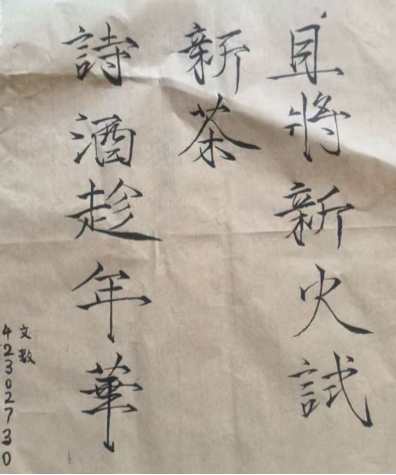 且將新火試
新茶
詩酒趁年華
文数
42302730